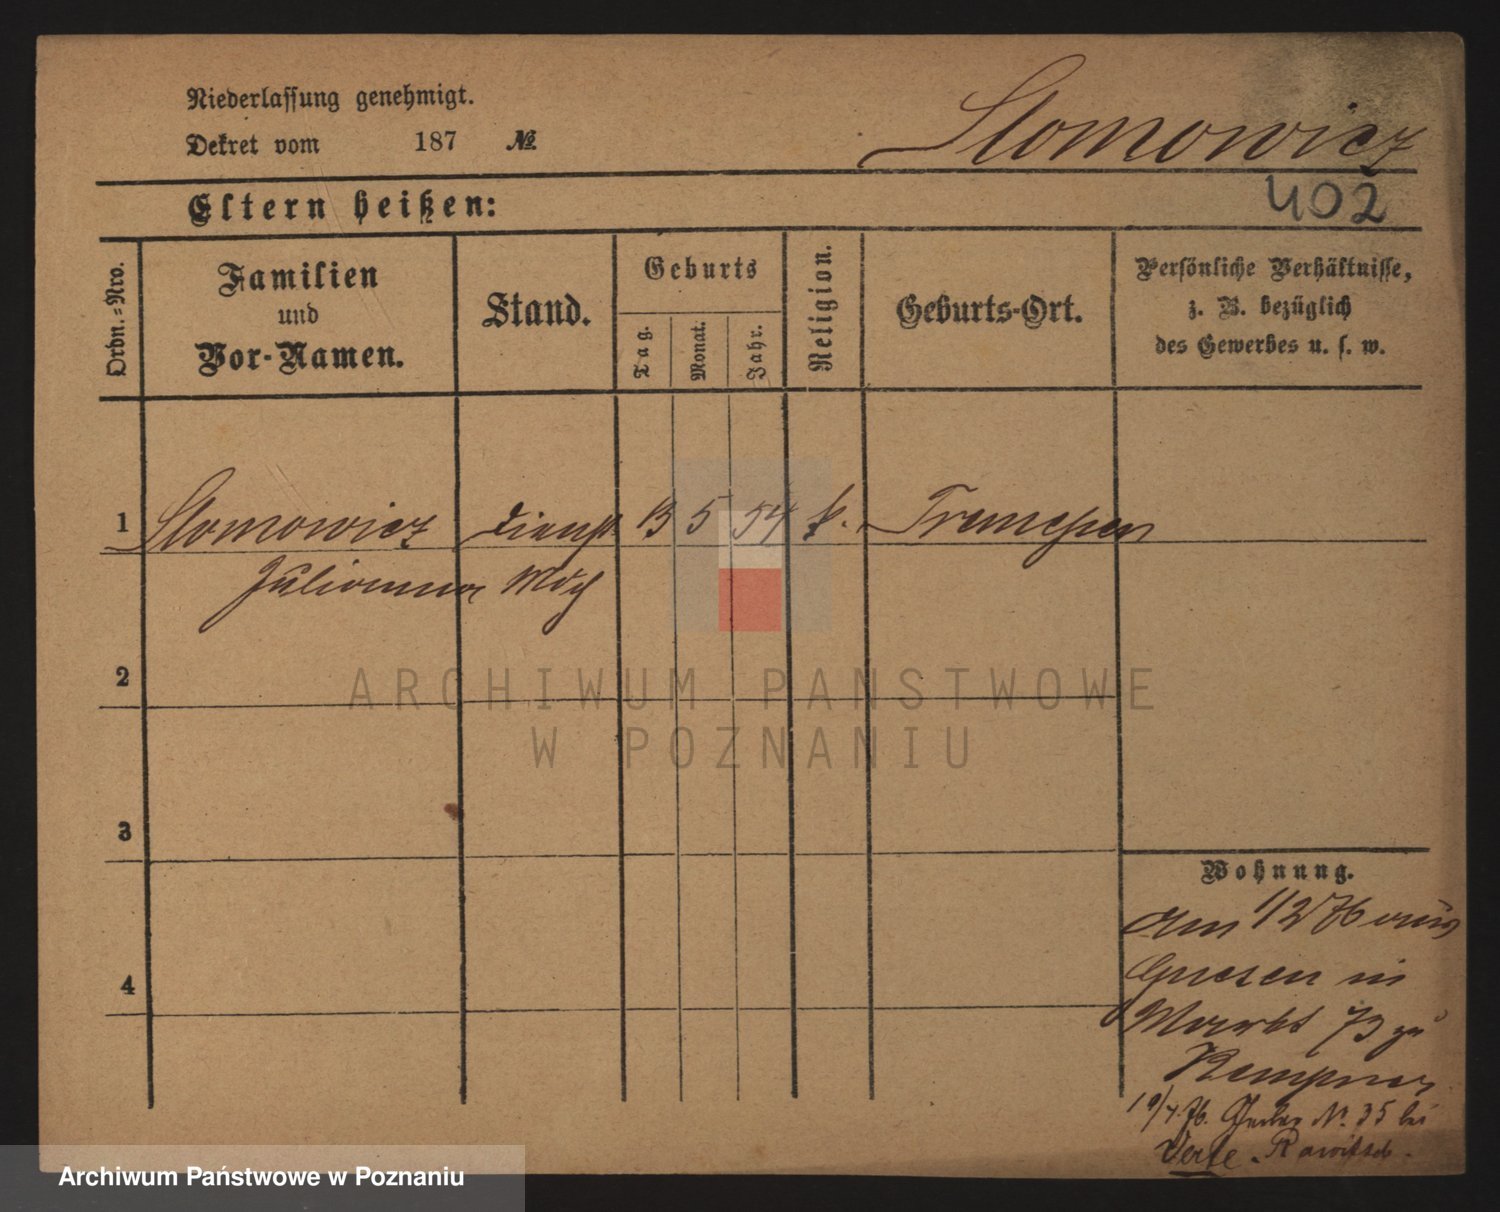 Niederlassung genehmigt.
Dekret vom 187 №
Slomowicz
402
Eltern heißen:
Ordn.=Nro.
Familien
und
Vor-Namen.
Stand.
Geburts
Tag.
Monat.
Jahr.
Religion.
Geburts-Ort.
Persönliche Verhältnisse,
z. B. bezüglich
des Gewerbes u. s. w.
1 Slomowicz Dienst 13 5 54 k. Tremessen
Julianna
2
3
4
Wohnung.
Am 1/2 76 aus
Gnesen in
Markt 73 zu
Kempner
19/4 76. No. 35 bei
Rawitsch.
ARCHIWUM PAŃSTWOWE
W POZNANIU
Archiwum Państwowe w Poznaniu